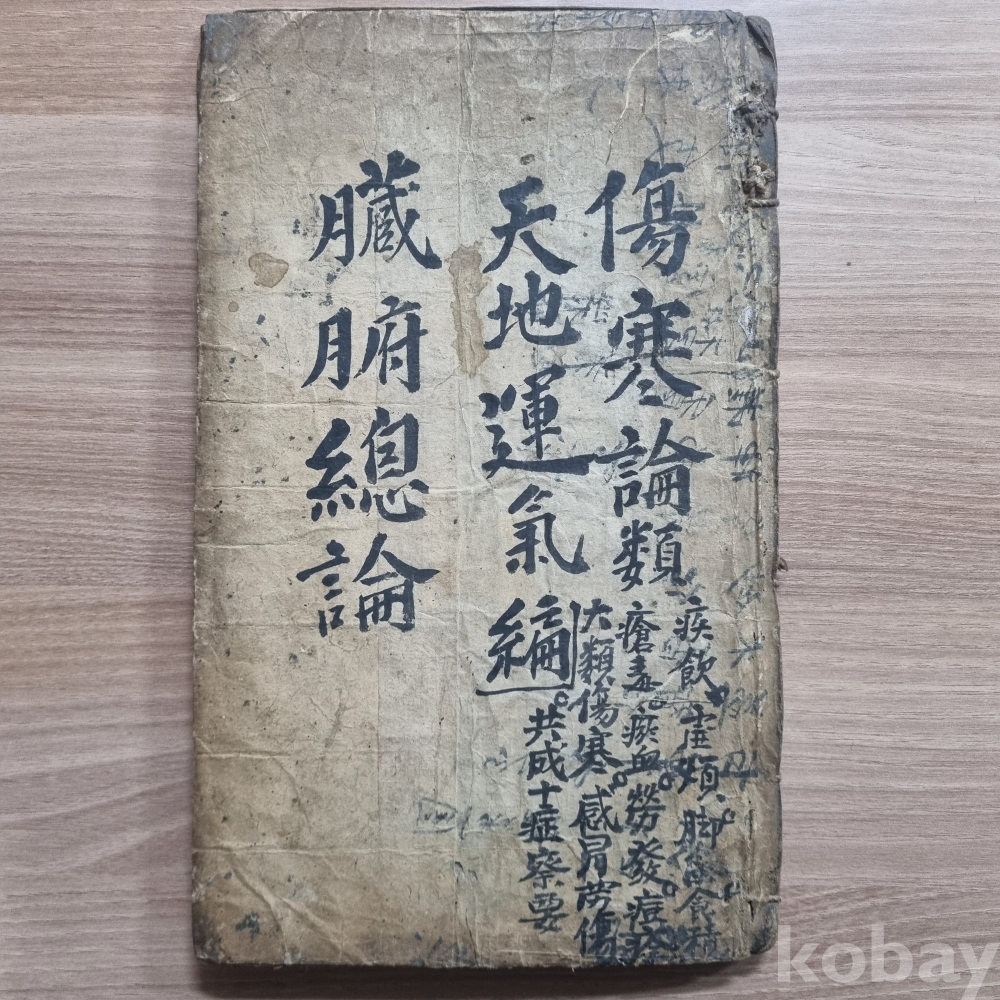 傷寒論類
疾飲、虛煩、脚氣食積
瘡毒、瘀血、勞發、痘疹
六類傷寒、感冒勞傷
共成十症察要
天地運氣編
臟腑總論
kobay